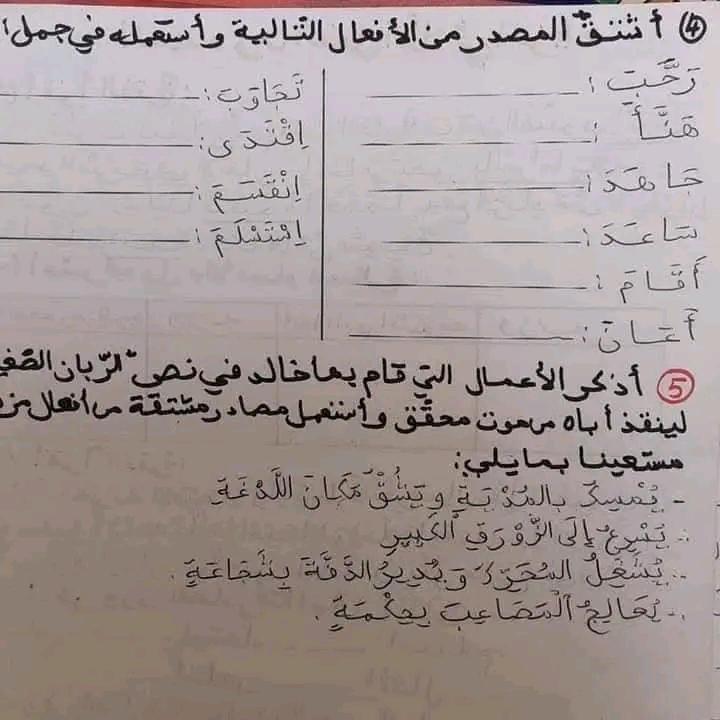 ④ أشتقّ المصدر من الأفعال التالية وأستعمله في جمل:
رَحَّبَ :
هَنَّأَ :
جَاهَدَ :
سَاعَدَ :
أَقَامَ :
أَعَانَ :
تَجَاوَبَ :
اِقْتَدَى :
اِنْقَسَمَ :
اِسْتَسْلَمَ :
⑤ أذكر الأعمال التي قام بها خالد في نص "الرّبان الصّغي
لينقذ أباه من موت محقّق وأستعمل مصادر مشتقة من أفعال مز
مستعينا بما يلي:
- يُمْسِكُ بِالمُدْيَةِ وَيَشُقُّ مَكَانَ اللَّدْغَةِ
- يُسْرِعُ إِلَى الزَّوْرَقِ الْكَبِيرِ
- يُشَغِّلُ المُحَرِّكَ وَيُدِيرُ الدَّفَّةَ بِشَجَاعَةٍ.
- يُعَالِجُ الْمَصَاعِبَ بِحِكْمَةٍ.